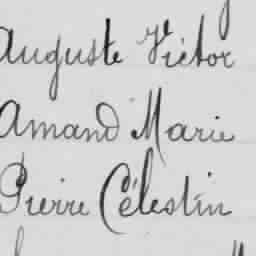 Auguste Victor
Amand Marie
Pierre Célestin